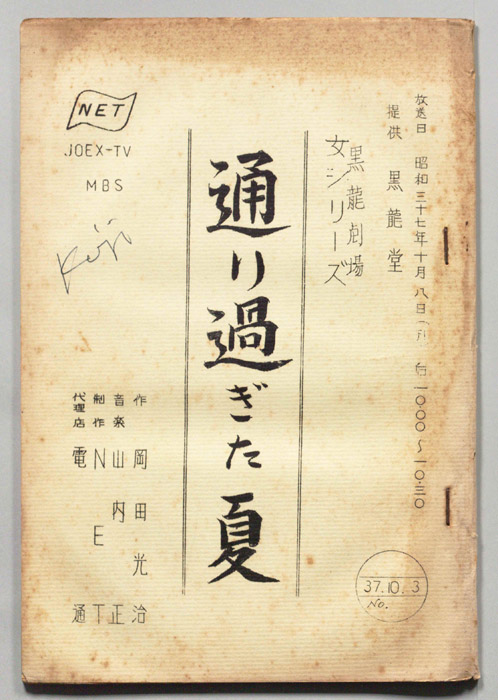 放送日 昭和三十七年十月八日(月) 后一〇・〇〇〜一〇・三〇
提供 黒龍堂
黒龍劇場
女シリーズ
通り過ぎた夏
作 岡田光治
音楽 山内正
制作 NET
代理店 電通
NET
JOEX-TV
MBS
37.10.3
No.